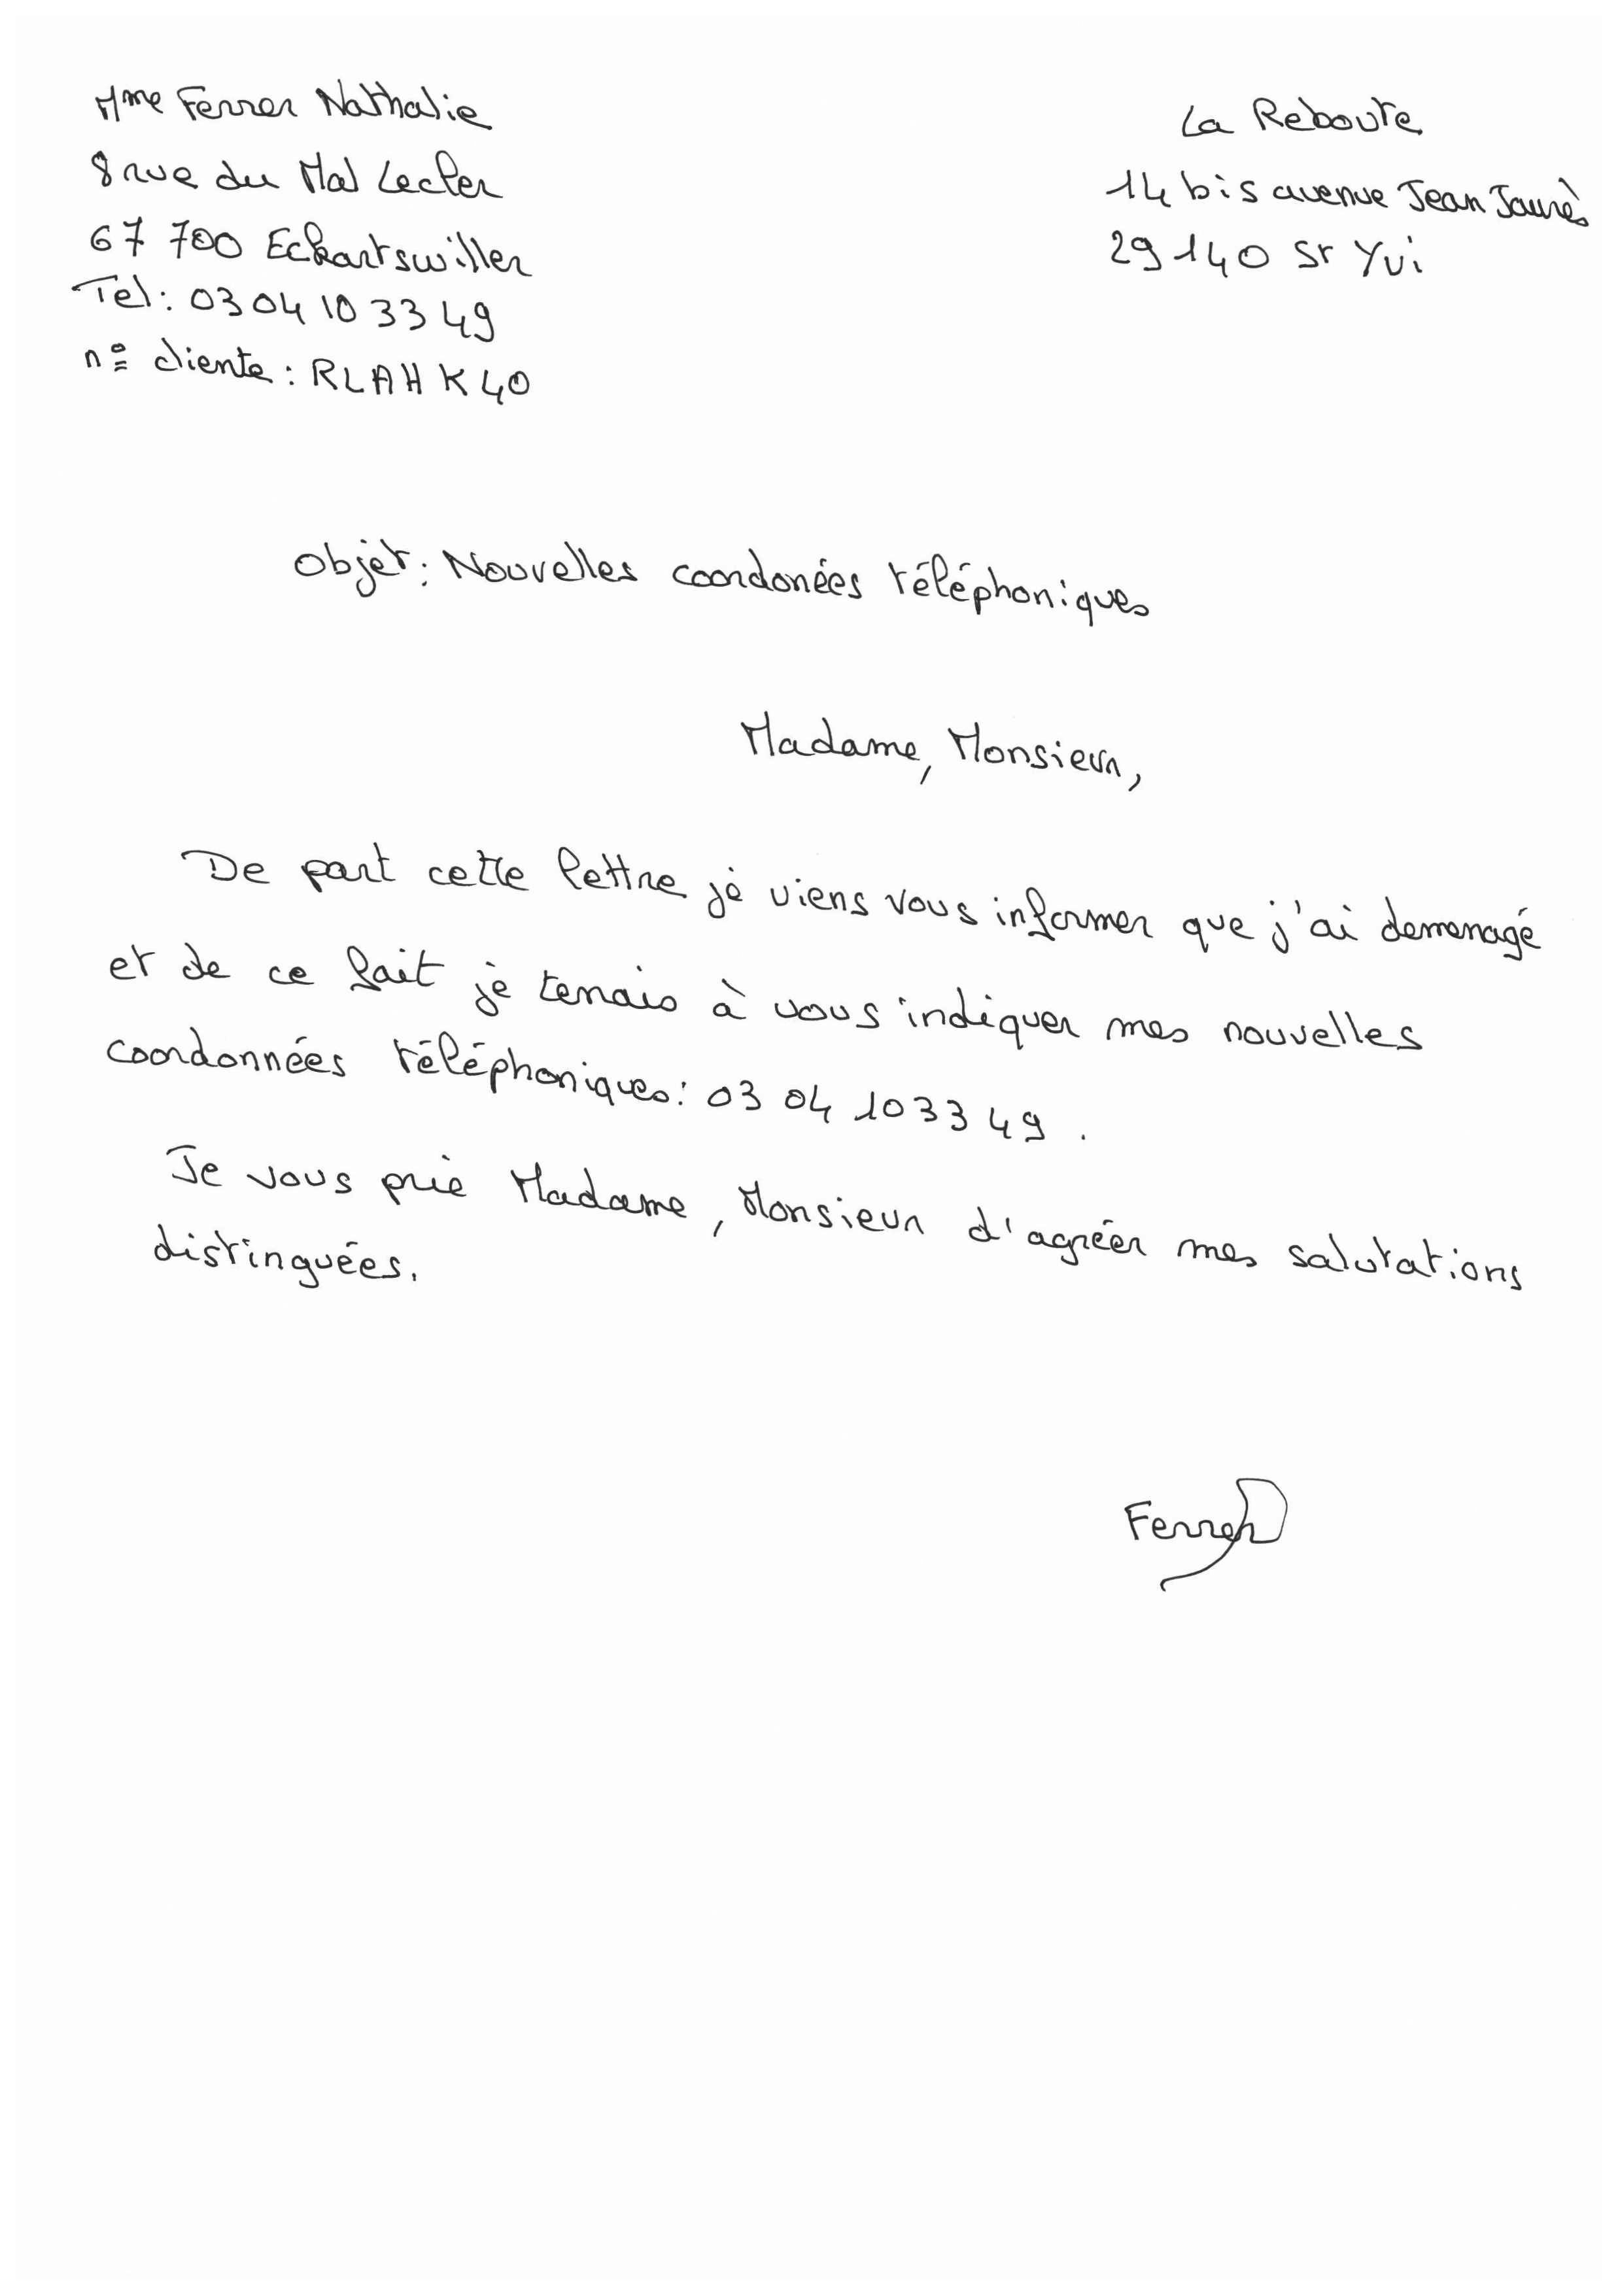 Mme Ferrer Nathalie
8 rue du Mal Lecler
67 700 Eckartswiller
Tel : 03 04 10 33 49
n° cliente : RLAHK40
La Reboute
14 bis avenue Jean Jaurès
29 140 St Yvi
Objet : Nouvelles coordonées téléphoniques
Madame, Monsieur,
De part cette lettre je viens vous informer que j'ai demenagé
et de ce fait je tenais à vous indiquer mes nouvelles
coordonnées téléphoniques : 03 04 10 33 49 .
Je vous prie Madame, Monsieur d'agréer mes salutations
distinguées.
Ferrer